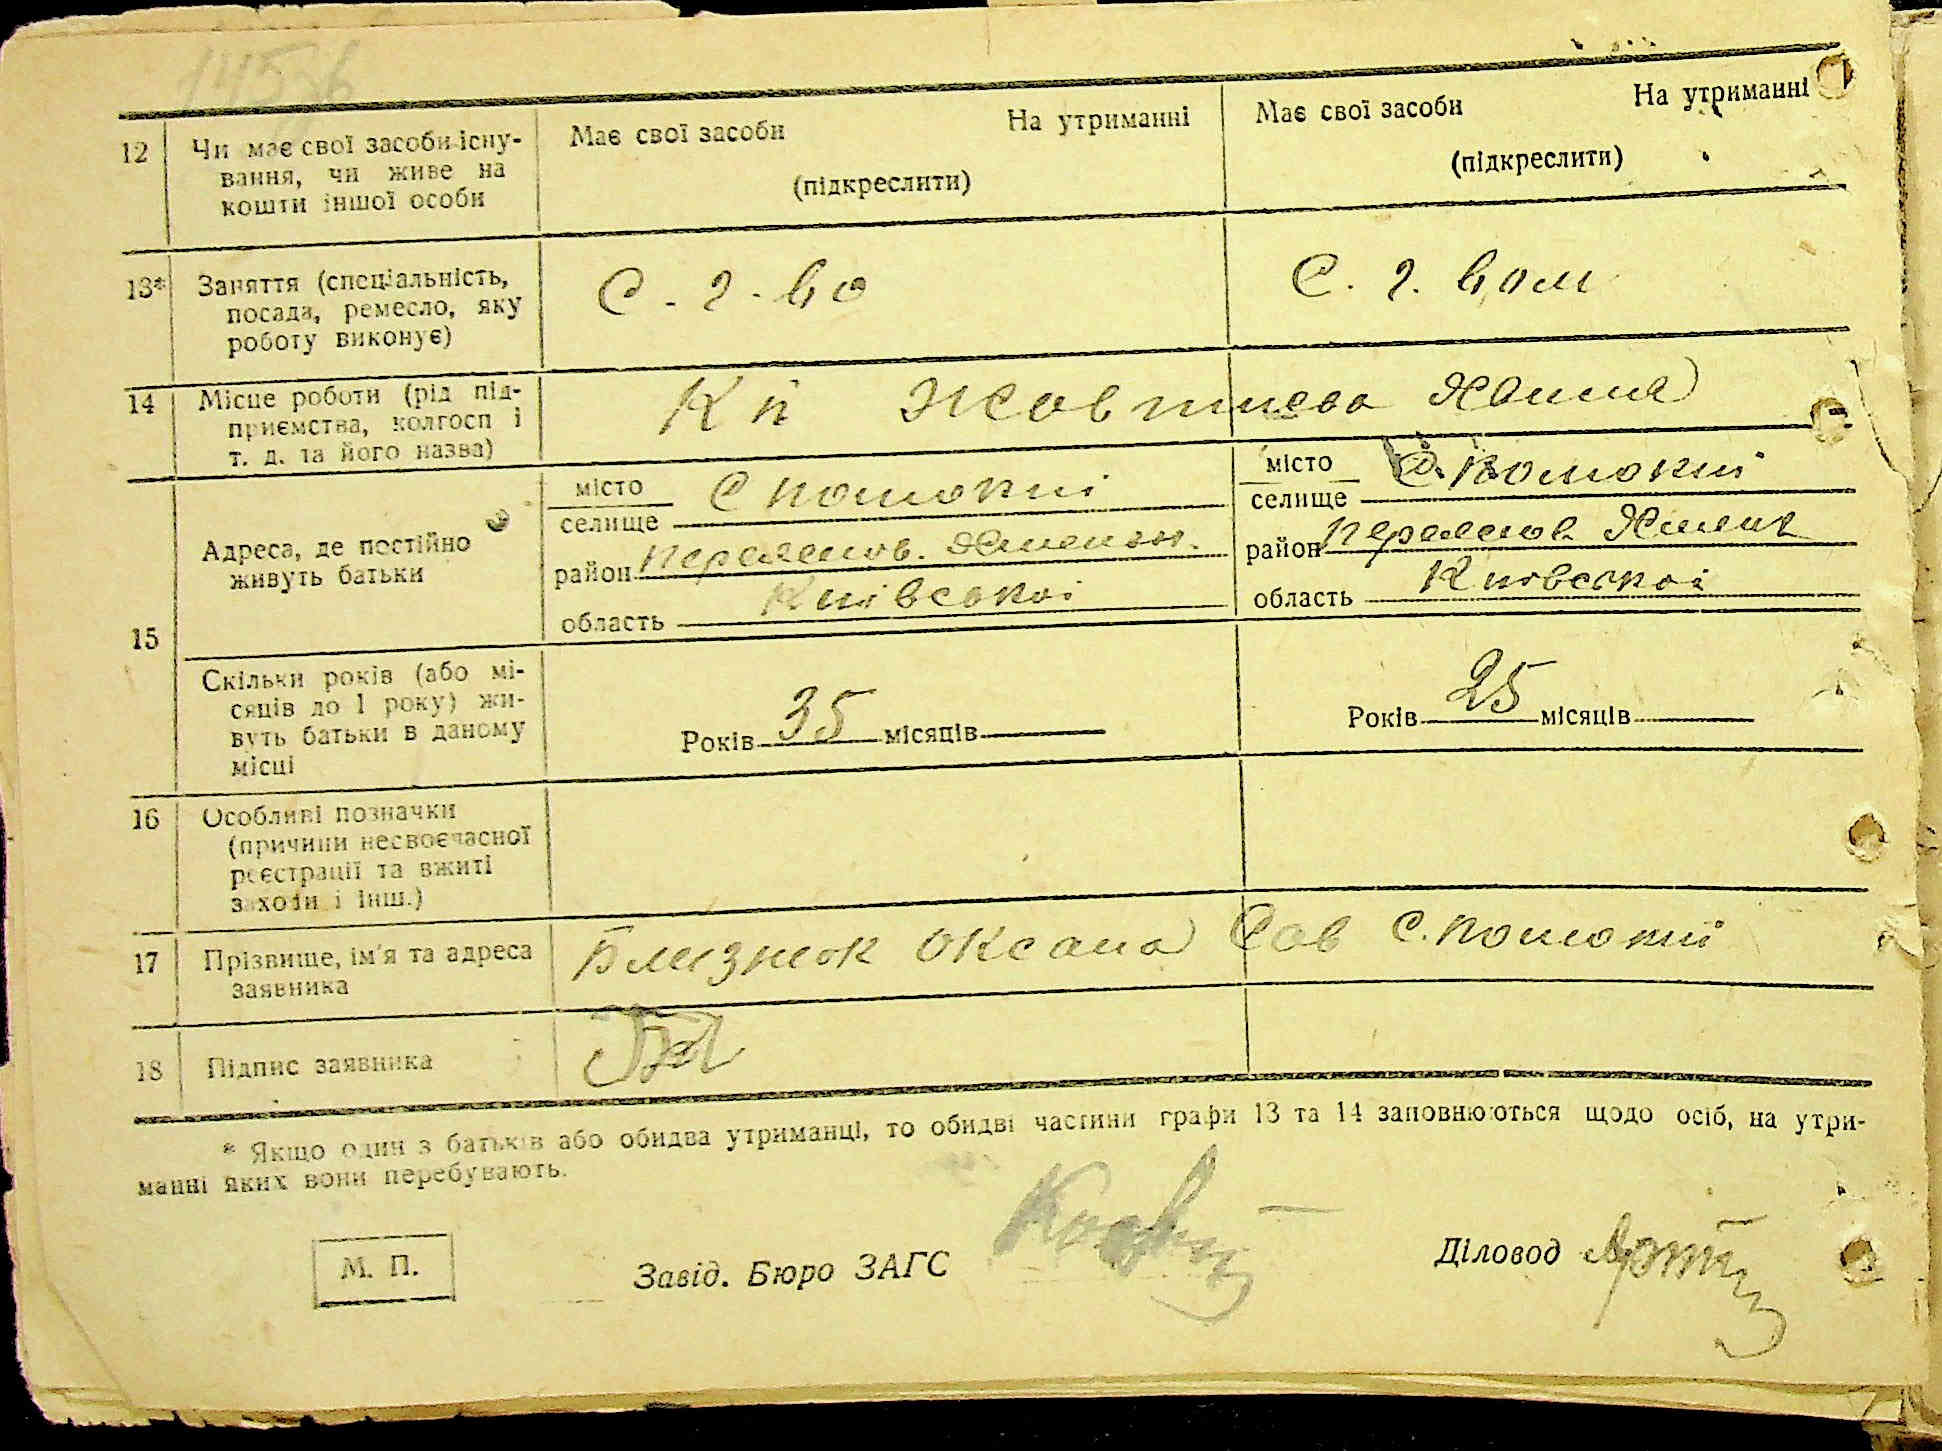 12 Чи має свої засоби існу-
вання, чи живе на
кошти іншої особи
Має свої засоби На утриманні
(підкреслити)
Має свої засоби На утриманні
(підкреслити)
13* Заняття (спеціальність,
посада, ремесло, яку
роботу виконує)
С. г.
С. г.
14 Місце роботи (рід під-
приємства, колгосп і
т. д. та його назва)
Жовтнева
15 Адреса, де постійно
живуть батьки
місто
селище
район
область Київської
місто
селище
район
область Київської
Скільки років (або мі-
сяців до 1 року) жи-
вуть батьки в даному
місці
Років 35 місяців
Років 25 місяців
16 Особливі позначки
(причини несвоєчасної
реєстрації та вжиті
заходи і інш.)
17 Прізвище, ім'я та адреса
заявника
Близнюк Оксана Сав
18 Підпис заявника
* Якщо один з батьків або обидва утриманці, то обидві частини графи 13 та 14 заповнюються щодо осіб, на утри-
манні яких вони перебувають.
М. П.
Завід. Бюро ЗАГС
Діловод